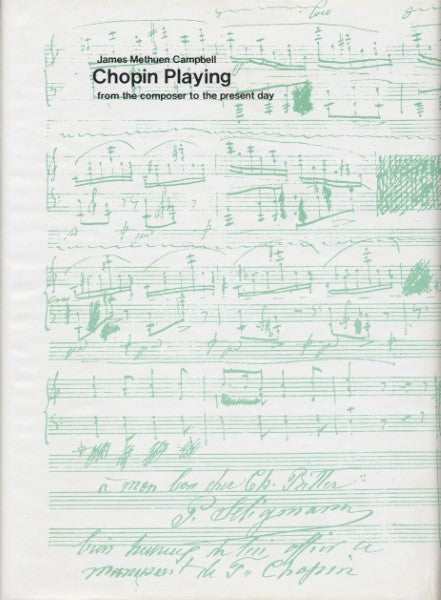 loco
James Methuen Campbell
Chopin Playing
from the composer to the present day
à mon bon cher Ch.
P. Seligmann
bien heureux de lui offrir ce
manuscrit de Fr. Chopin